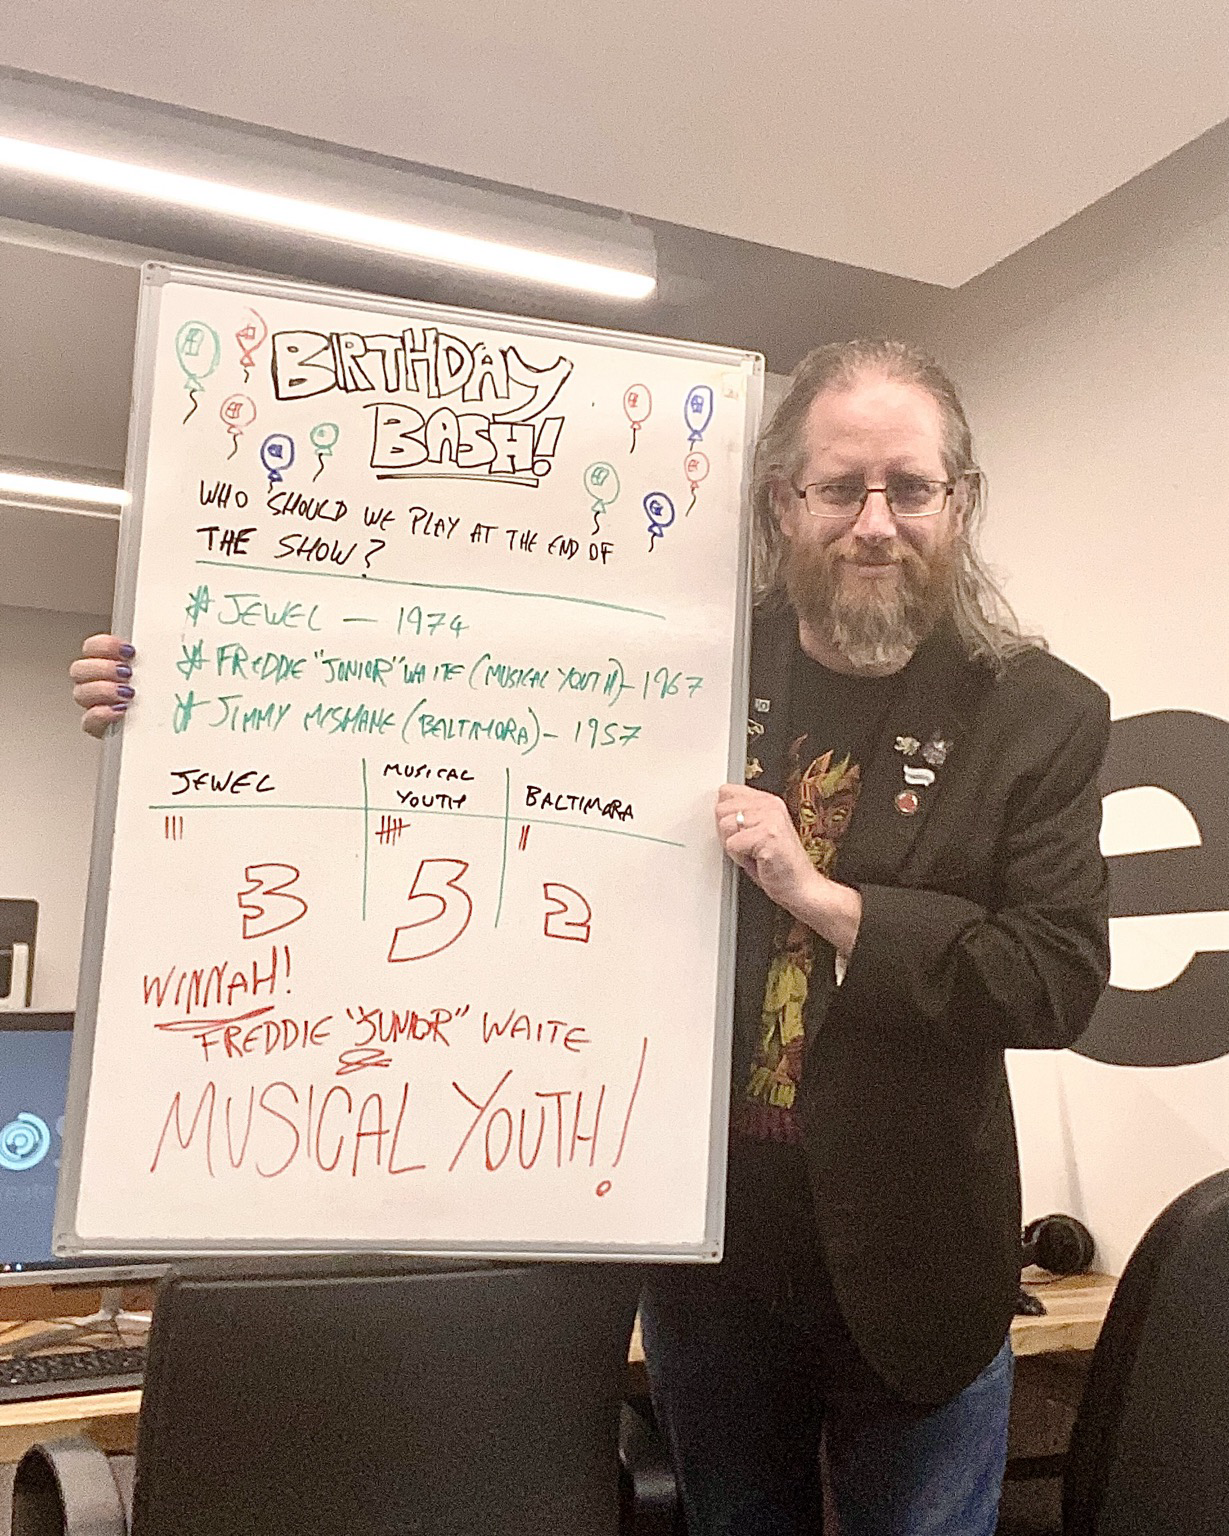 BIRTHDAY
BASH!
WHO SHOULD WE PLAY AT THE END OF
THE SHOW?
* JEWEL — 1974
* FREDDIE "JUNIOR" WAITE (MUSICAL YOUTH) - 1967
* JIMMY MCSHANE (BALTIMORA) - 1957
JEWEL
MUSICAL
YOUTH
BALTIMORA
3
5
2
WINNAH!
FREDDIE "JUNIOR" WAITE
&
MUSICAL YOUTH!
e